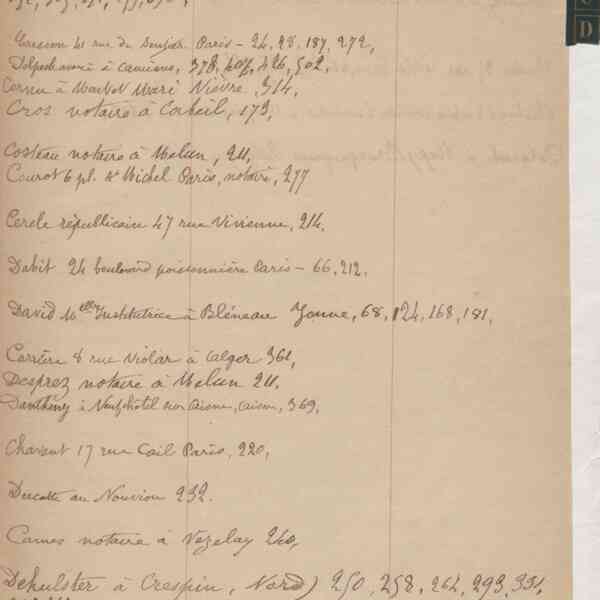 Cresson 41 rue du Sentier Paris - 24, 28, 187, 272,
Delpech avoué à Amiens, 378, 407, 426, 502,
Cornu à Nièvre, 314,
Cros notaire à Corbeil, 173,
Costeau notaire à Melun, 211,
Courot 6 pl. St Michel Paris, notaire, 277
Cercle républicain 47 rue Vivienne, 214,
Dabit 24 boulevard poissonnière Paris - 66, 212,
David Melle Institutrice à Bléneau Yonne, 68, 124, 168, 181,
Carrière 8 rue Violar à Alger 361,
Desprez notaire à Melun 211,
Danthény à Neufchâtel sur Aisne, Aisne, 369,
Charent 17 rue Cail Paris, 220,
au Nouvion 232.
notaire à Vezelay 240,
Dehulster à Crespin, Nord) 250, 258, 262, 293, 331,
D